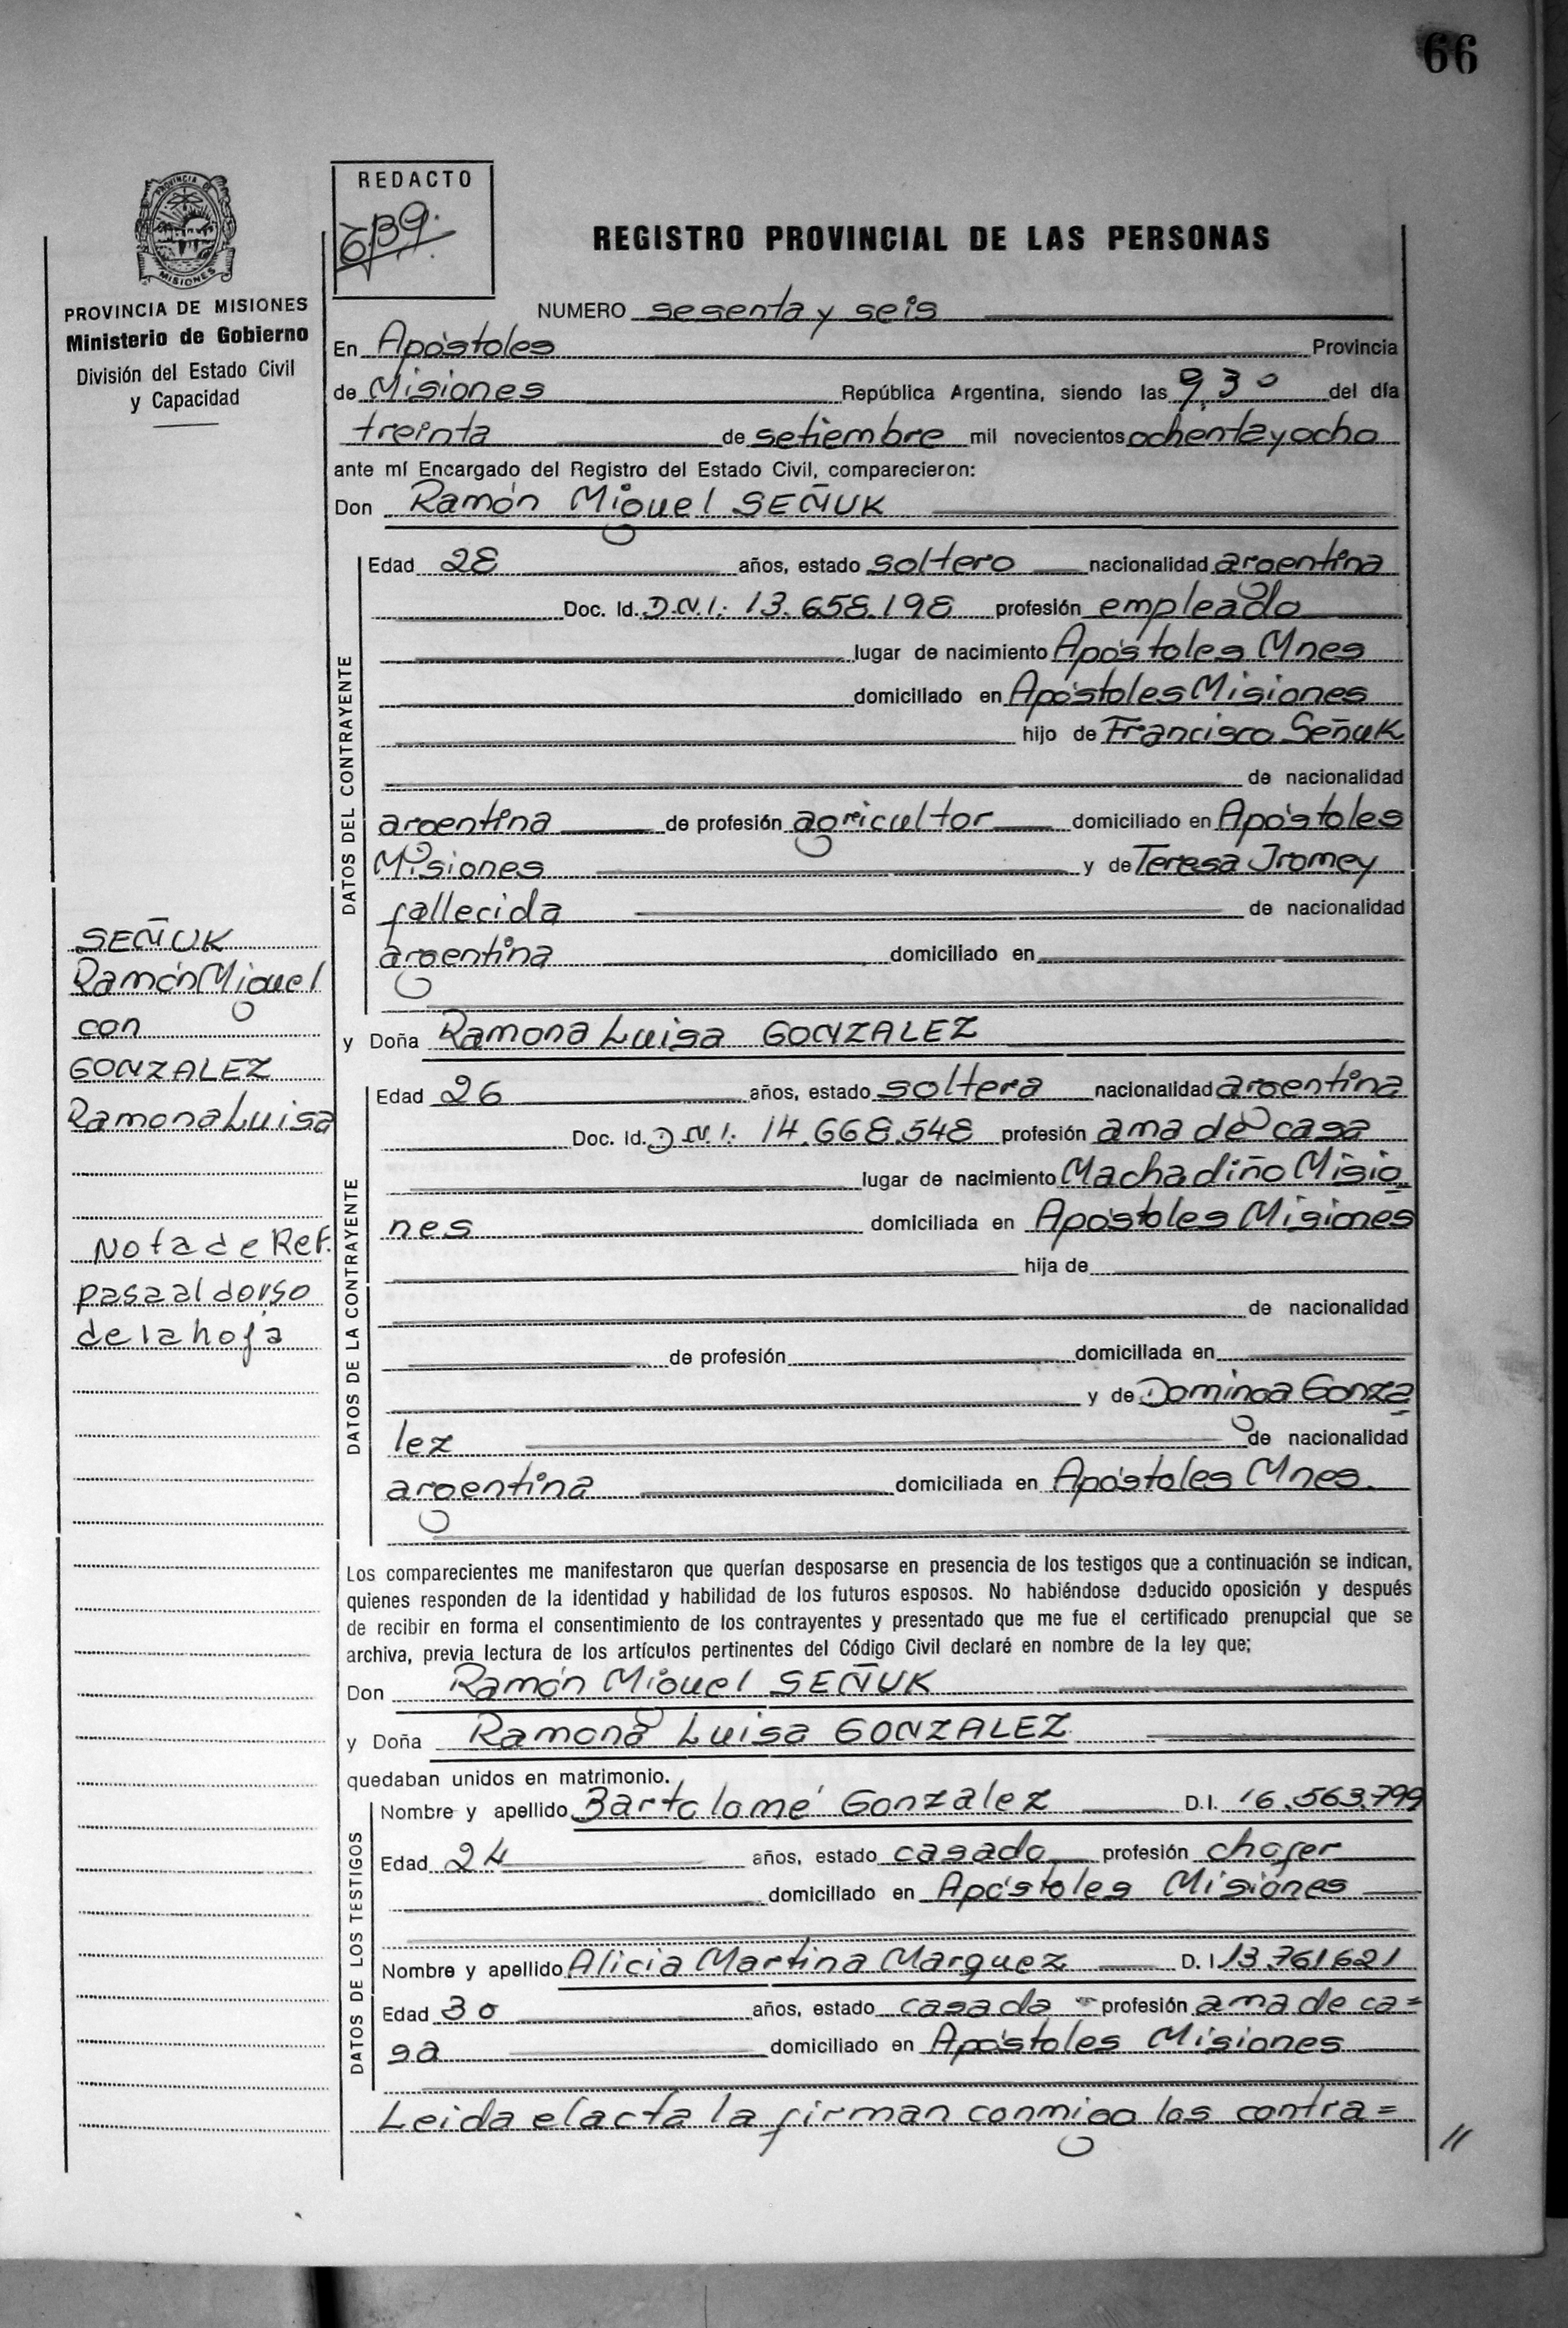 66
REDACTO
PROVINCIA DE MISIONES
Ministerio de Gobierno
División del Estado Civil
y Capacidad
REGISTRO PROVINCIAL DE LAS PERSONAS
NUMERO sesenta y seis
En Apóstoles Provincia
de Misiones República Argentina, siendo las 9,30 del día
treinta de setiembre mil novecientos ochenta y ocho
ante mí Encargado del Registro del Estado Civil, comparecieron:
Don Ramón Miguel SEÑUK
DATOS DEL CONTRAYENTE
Edad 28 años, estado soltero nacionalidad argentina
Doc. Id. D.N.I. 13.658.198 profesión empleado
lugar de nacimiento Apóstoles Mnes
domiciliado en Apóstoles Misiones
hijo de Francisco Señuk
de nacionalidad
argentina de profesión agricultor domiciliado en Apóstoles
Misiones y de Teresa Iromey
fallecida de nacionalidad
argentina domiciliado en
y Doña Ramona Luisa GONZALEZ
DATOS DE LA CONTRAYENTE
Edad 26 años, estado soltera nacionalidad argentina
Doc. Id. D.N.I. 14.668.548 profesión ama de casa
lugar de nacimiento Machadiño Misio
nes domiciliada en Apóstoles Misiones
hija de
de nacionalidad
de profesión domiciliada en
y de Dominga Gonza
lez de nacionalidad
argentina domiciliada en Apóstoles Mnes.
SEÑUK
Ramón Miguel
con
GONZALEZ
Ramona Luisa
Nota de Ref.
pasa al dorso
de la hoja
Los comparecientes me manifestaron que querían desposarse en presencia de los testigos que a continuación se indican,
quienes responden de la identidad y habilidad de los futuros esposos. No habiéndose deducido oposición y después
de recibir en forma el consentimiento de los contrayentes y presentado que me fue el certificado prenupcial que se
archiva, previa lectura de los artículos pertinentes del Código Civil declaré en nombre de la ley que;
Don Ramón Miguel SEÑUK
y Doña Ramona Luisa GONZALEZ
quedaban unidos en matrimonio.
DATOS DE LOS TESTIGOS
Nombre y apellido Bartolomé Gonzalez D.I. 16.563.799
Edad 24 años, estado casado profesión chofer
domiciliado en Apóstoles Misiones
Nombre y apellido Alicia Martina Marquez D.I 13.761621
Edad 30 años, estado casada profesión ama de ca=
sa domiciliado en Apóstoles Misiones
Leida el acta la firman conmigo los contra=
//